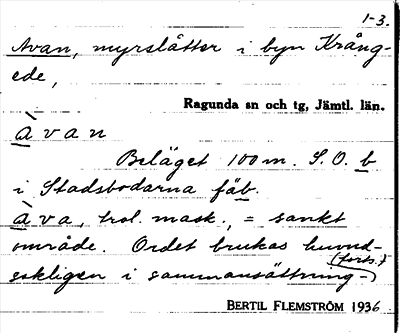 1-3.
Avan, myrslåtter i byn Krång-
ede,
Ragunda sn och tg, Jämtl. län.
àvan
Beläget 100 m. S.O. b
i Stadsbodarna fäb.
àva, trol. mask., = sankt
område. Ordet brukas huvud-
sakligen i sammansättning-
(forts.)
BERTIL FLEMSTRÖM 1936